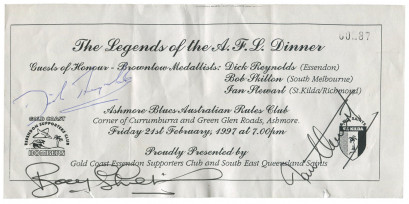 00287
The Legends of the A.F.L. Dinner
Guests of Honour - Brownlow Medallists: Dick Reynolds (Essendon)
Bob Skilton (South Melbourne)
Ian Stewart (St.Kilda/Richmond)
Ashmore Blues Australian Rules Club
Corner of Currumburra and Green Glen Roads, Ashmore.
Friday 21st February, 1997 at 7.00pm
GOLD COAST
BOMBERS
ST. KILDA
Proudly Presented by
Gold Coast Essendon Supporters Club and South East Queensland Saints